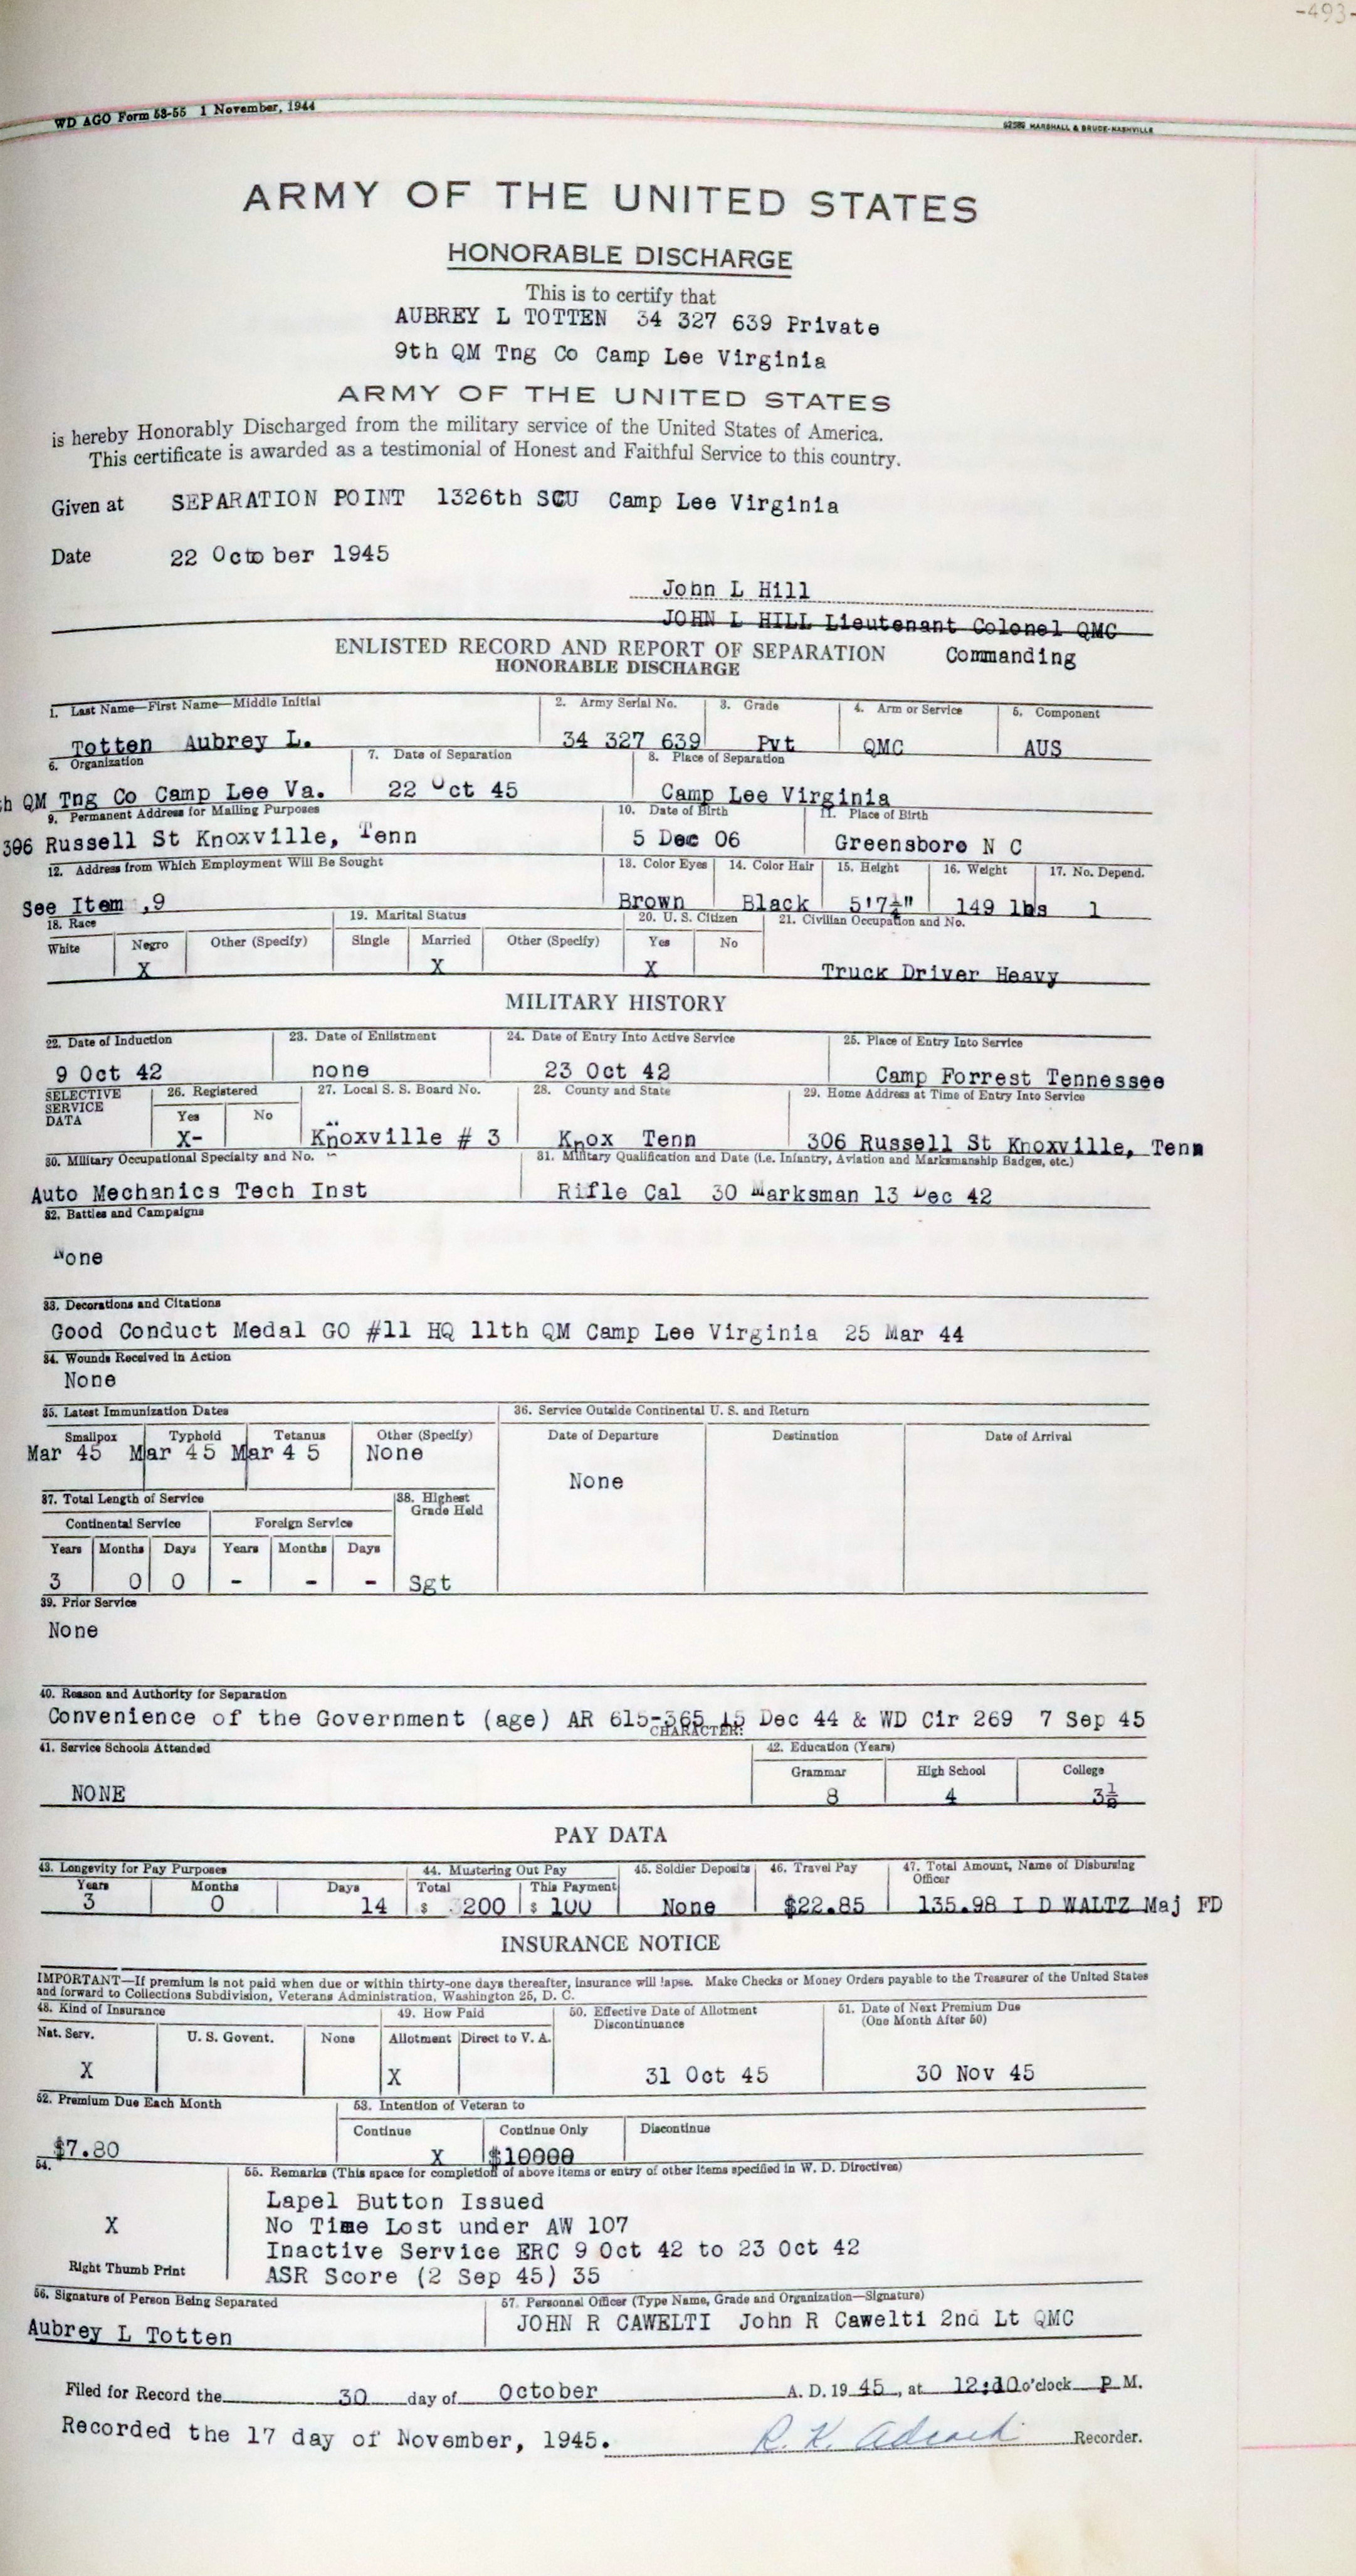 -493-
WD AGO Form 53-55 1 November, 1944
62589 MARSHALL & BRUCE-NASHVILLE
ARMY OF THE UNITED STATES
HONORABLE DISCHARGE
This is to certify that
AUBREY L TOTTEN 34 327 639 Private
9th QM Tng Co Camp Lee Virginia
ARMY OF THE UNITED STATES
is hereby Honorably Discharged from the military service of the United States of America.
This certificate is awarded as a testimonial of Honest and Faithful Service to this country.
Given at SEPARATION POINT 1326th SCU Camp Lee Virginia
Date 22 October 1945
John L Hill
JOHN L HILL Lieutenant Colonel QMC
ENLISTED RECORD AND REPORT OF SEPARATION Commanding
HONORABLE DISCHARGE
1. Last Name—First Name—Middle Initial 2. Army Serial No. 3. Grade 4. Arm or Service 5. Component
Totten Aubrey L. 34 327 639 Pvt QMC AUS
6. Organization 7. Date of Separation 8. Place of Separation
h QM Tng Co Camp Lee Va. 22 Oct 45 Camp Lee Virginia
9. Permanent Address for Mailing Purposes 10. Date of Birth 11. Place of Birth
306 Russell St Knoxville, Tenn 5 Dec 06 Greensboro N C
12. Address from Which Employment Will Be Sought 13. Color Eyes 14. Color Hair 15. Height 16. Weight 17. No. Depend.
See Item ,9 Brown Black 5'7½" 149 lbs 1
18. Race 19. Marital Status 20. U. S. Citizen 21. Civilian Occupation and No.
White Negro Other (Specify) Single Married Other (Specify) Yes No
X X X Truck Driver Heavy
MILITARY HISTORY
22. Date of Induction 23. Date of Enlistment 24. Date of Entry Into Active Service 25. Place of Entry Into Service
9 Oct 42 none 23 Oct 42 Camp Forrest Tennessee
SELECTIVE SERVICE DATA 26. Registered 27. Local S. S. Board No. 28. County and State 29. Home Address at Time of Entry Into Service
Yes No
X- Knoxville # 3 Knox Tenn 306 Russell St Knoxville, Tenn
30. Military Occupational Specialty and No. 31. Military Qualification and Date (i.e. Infantry, Aviation and Marksmanship Badges, etc.)
Auto Mechanics Tech Inst Rifle Cal 30 Marksman 13 Dec 42
32. Battles and Campaigns
None
33. Decorations and Citations
Good Conduct Medal GO #11 HQ 11th QM Camp Lee Virginia 25 Mar 44
34. Wounds Received in Action
None
35. Latest Immunization Dates 36. Service Outside Continental U. S. and Return
Smallpox Typhoid Tetanus Other (Specify) Date of Departure Destination Date of Arrival
Mar 45 Mar 45 Mar 4 5 None
None
37. Total Length of Service 38. Highest Grade Held
Continental Service Foreign Service
Years Months Days Years Months Days
3 0 0 - - - Sgt
39. Prior Service
None
40. Reason and Authority for Separation
Convenience of the Government (age) AR 615-365 15 Dec 44 & WD Cir 269 7 Sep 45
CHARACTER:
41. Service Schools Attended 42. Education (Years)
Grammar High School College
NONE 8 4 3½
PAY DATA
43. Longevity for Pay Purposes 44. Mustering Out Pay 45. Soldier Deposits 46. Travel Pay 47. Total Amount, Name of Disbursing Officer
Years Months Days Total This Payment
3 0 14 $ 200 $ 100 None $22.85 135.98 I D WALTZ Maj FD
INSURANCE NOTICE
IMPORTANT—If premium is not paid when due or within thirty-one days thereafter, insurance will lapse. Make Checks or Money Orders payable to the Treasurer of the United States
and forward to Collections Subdivision, Veterans Administration, Washington 25, D. C.
48. Kind of Insurance 49. How Paid 50. Effective Date of Allotment Discontinuance 51. Date of Next Premium Due (One Month After 50)
Nat. Serv. U. S. Govent. None Allotment Direct to V. A.
X X 31 Oct 45 30 Nov 45
52. Premium Due Each Month 53. Intention of Veteran to
Continue Continue Only Discontinue
$7.80 X $10000
54. 55. Remarks (This space for completion of above items or entry of other items specified in W. D. Directives)
Lapel Button Issued
X No Time Lost under AW 107
Inactive Service ERC 9 Oct 42 to 23 Oct 42
Right Thumb Print ASR Score (2 Sep 45) 35
56. Signature of Person Being Separated 57. Personnel Officer (Type Name, Grade and Organization—Signature)
Aubrey L Totten JOHN R CAWELTI John R Cawelti 2nd Lt QMC
Filed for Record the 30 day of October A. D. 19 45, at 12:10 o'clock P M.
Recorded the 17 day of November, 1945. R. K. Adcock Recorder.